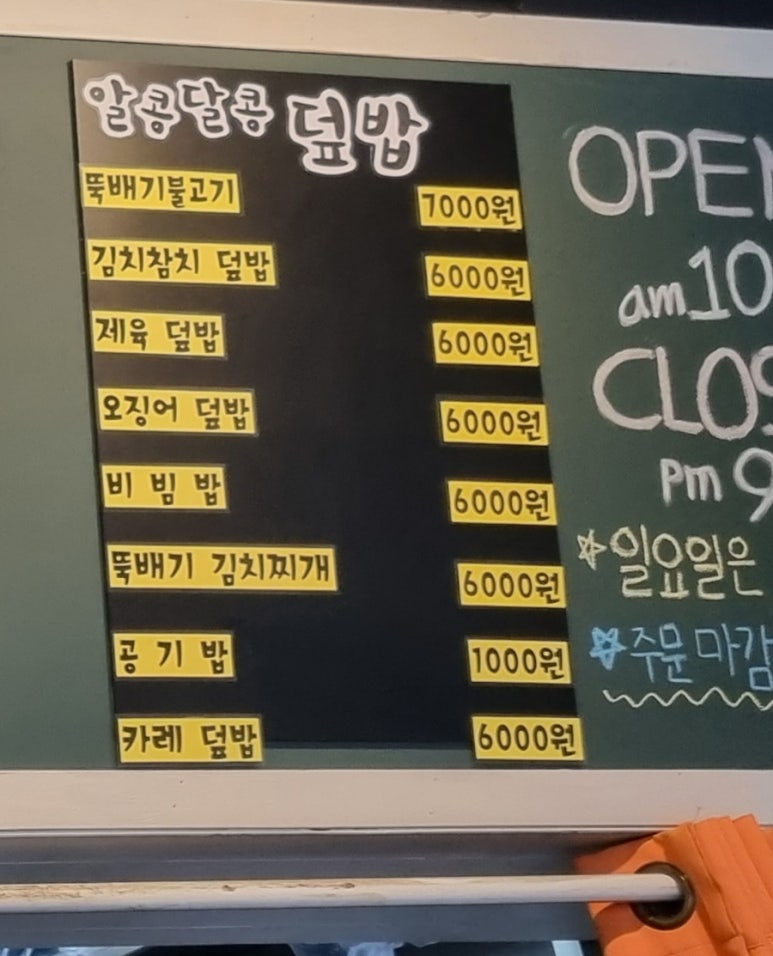 알콩달콩 덮밥
뚝배기불고기 7000원
김치참치 덮밥 6000원
제육 덮밥 6000원
오징어 덮밥 6000원
비 빔 밥 6000원
뚝배기 김치찌개 6000원
공 기 밥 1000원
카레 덮밥 6000원
OPEN
am 10
CLOS
pm 9
일요일은
주문 마감